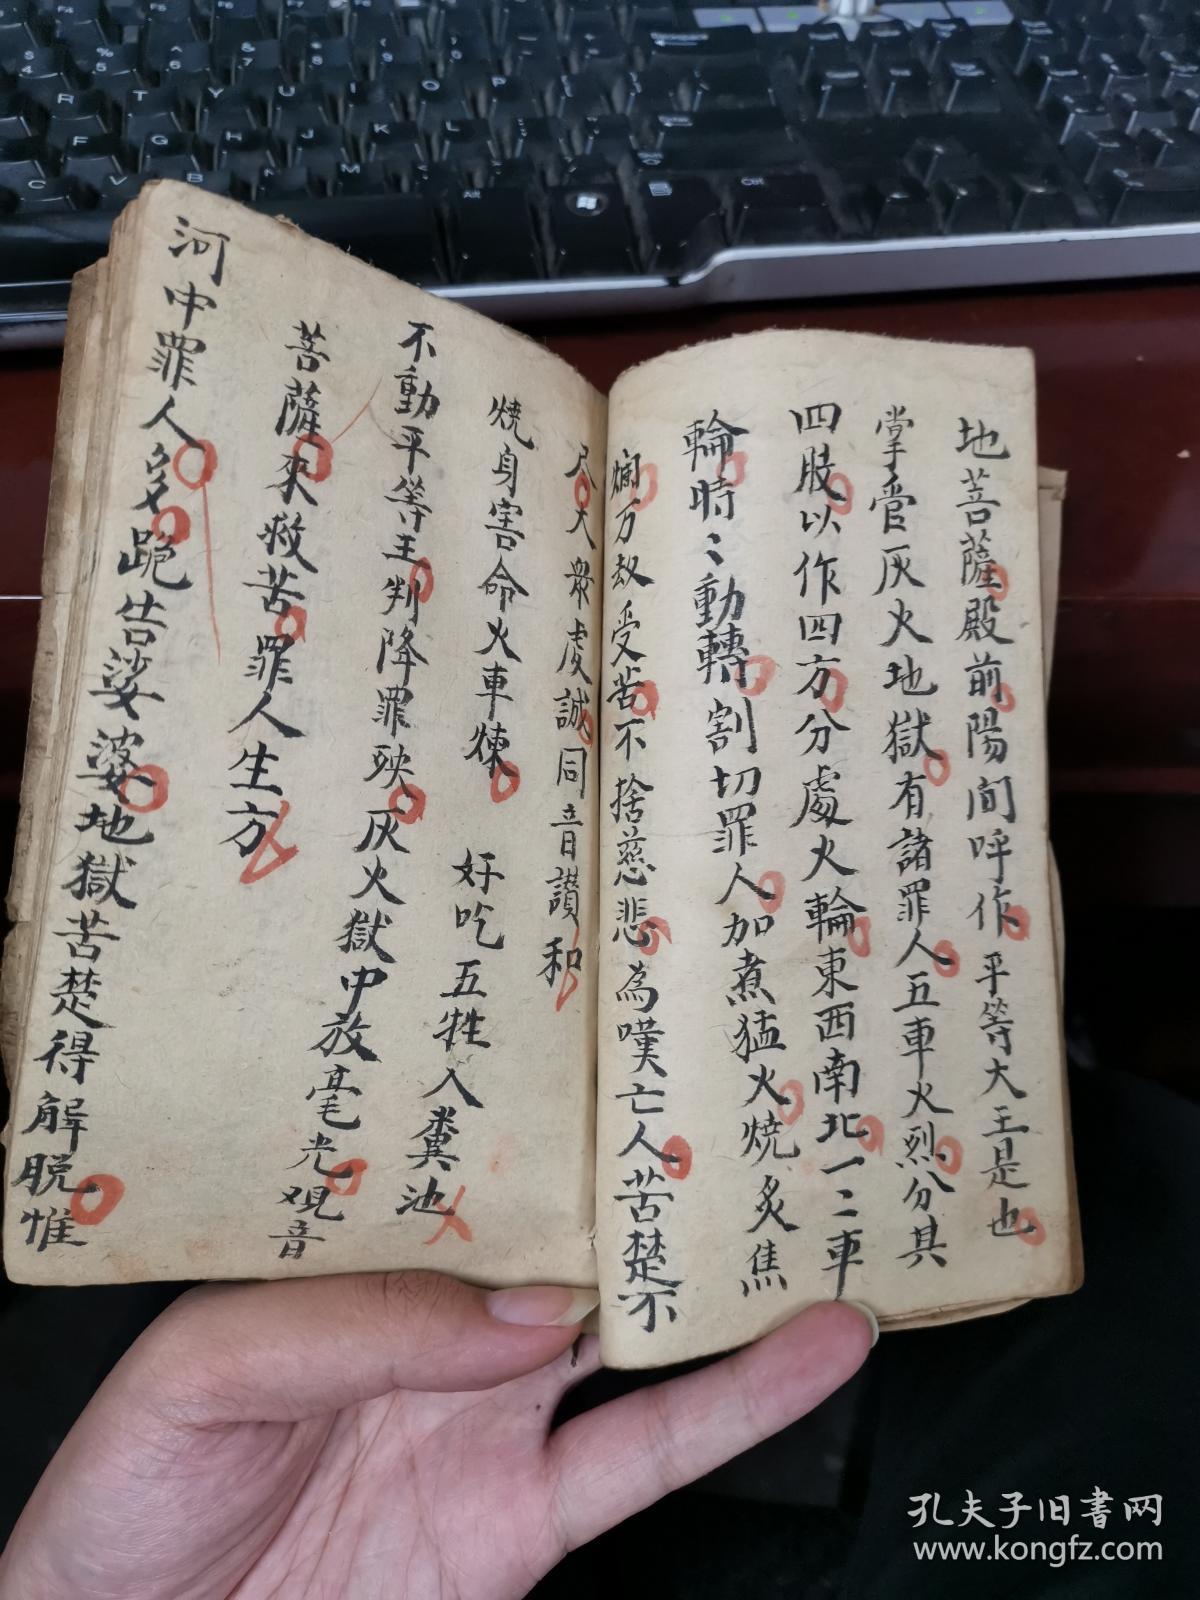 地菩薩殿前陽间呼作平等大王是也
掌管灰火地獄有諸罪人五車火烈分其
四肢以作四方分處火輪東西南北一二車
輪時〻動轉割切罪人加煮猛火燒炙焦
爛万劫受苦不捨慈悲為嘆亡人苦楚不
尽大衆虔誠同音讃和
燒身害命火車煉 好吃五牲入糞池
不動平等王判降罪殃灰火獄中放毫光观音
菩薩來救苦罪人生方
河中罪人多跪告娑婆地獄苦楚得解脱惟
孔夫子旧书网
www.kongfz.com